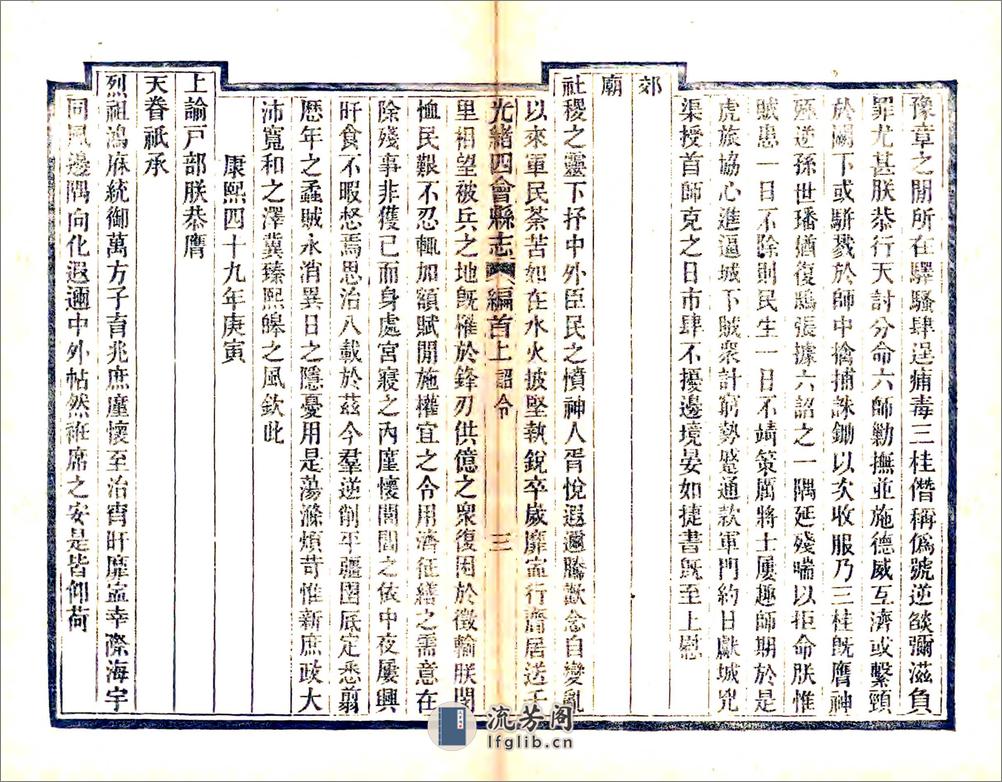 豫章之閒所在驛騷肆逞痡毒三桂僭稱僞號逆燄彌滋負
罪尤甚朕恭行天討分命六師勦撫並施德威互濟或繫頸
於闕下或駢戮於師中擒捕誅鋤以次收服乃三桂旣膺神
殛逆孫世璠猶復鴟張據六詔之一隅延殘喘以拒命朕惟
賊患一日不除則民生一日不靖策厲將士屢趣師期於是
虎旅協心進逼城下賊衆計窮勢蹙通款軍門約日獻城兇
渠授首師克之日市肆不擾邊境晏如捷書旣至上慰
郊
廟
社稷之靈下抒中外臣民之憤神人胥悅遐邇騰歡念自變亂
以來軍民荼苦如在水火披堅執銳卒歲靡寧行齎居送千
光緖四會縣志 編首上 詔令 三
里相望被兵之地旣罹於鋒刃供億之衆復困於徵輸朕閔
恤民艱不忍輒加額賦閒施權宜之令用濟征繕之需意在
除殘事非獲已而身處宮寢之內廑懷閭閻之依中夜屢興
旰食不暇惄焉思治八載於茲今羣逆削平疆圉厎定悉翦
歷年之蟊賊永消異日之隱憂用是蕩滌煩苛惟新庶政大
沛寬和之澤冀臻熙皞之風欽此
康熙四十九年庚寅
上諭戸部朕恭膺
天眷祇承
烈祖鴻庥統御萬方子育兆庶廑懷至治宵旰靡寍幸際海宇
同風邊隅向化遐邇中外帖然袵席之安是皆仰荷
流芳阁
lfglib.cn